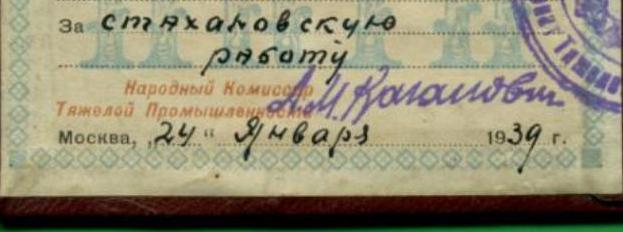 За стахановскую
работу
Народный Комиссар
Тяжелой Промышленности
Л.М. Каганович
Москва, „24“ Января 1939 г.